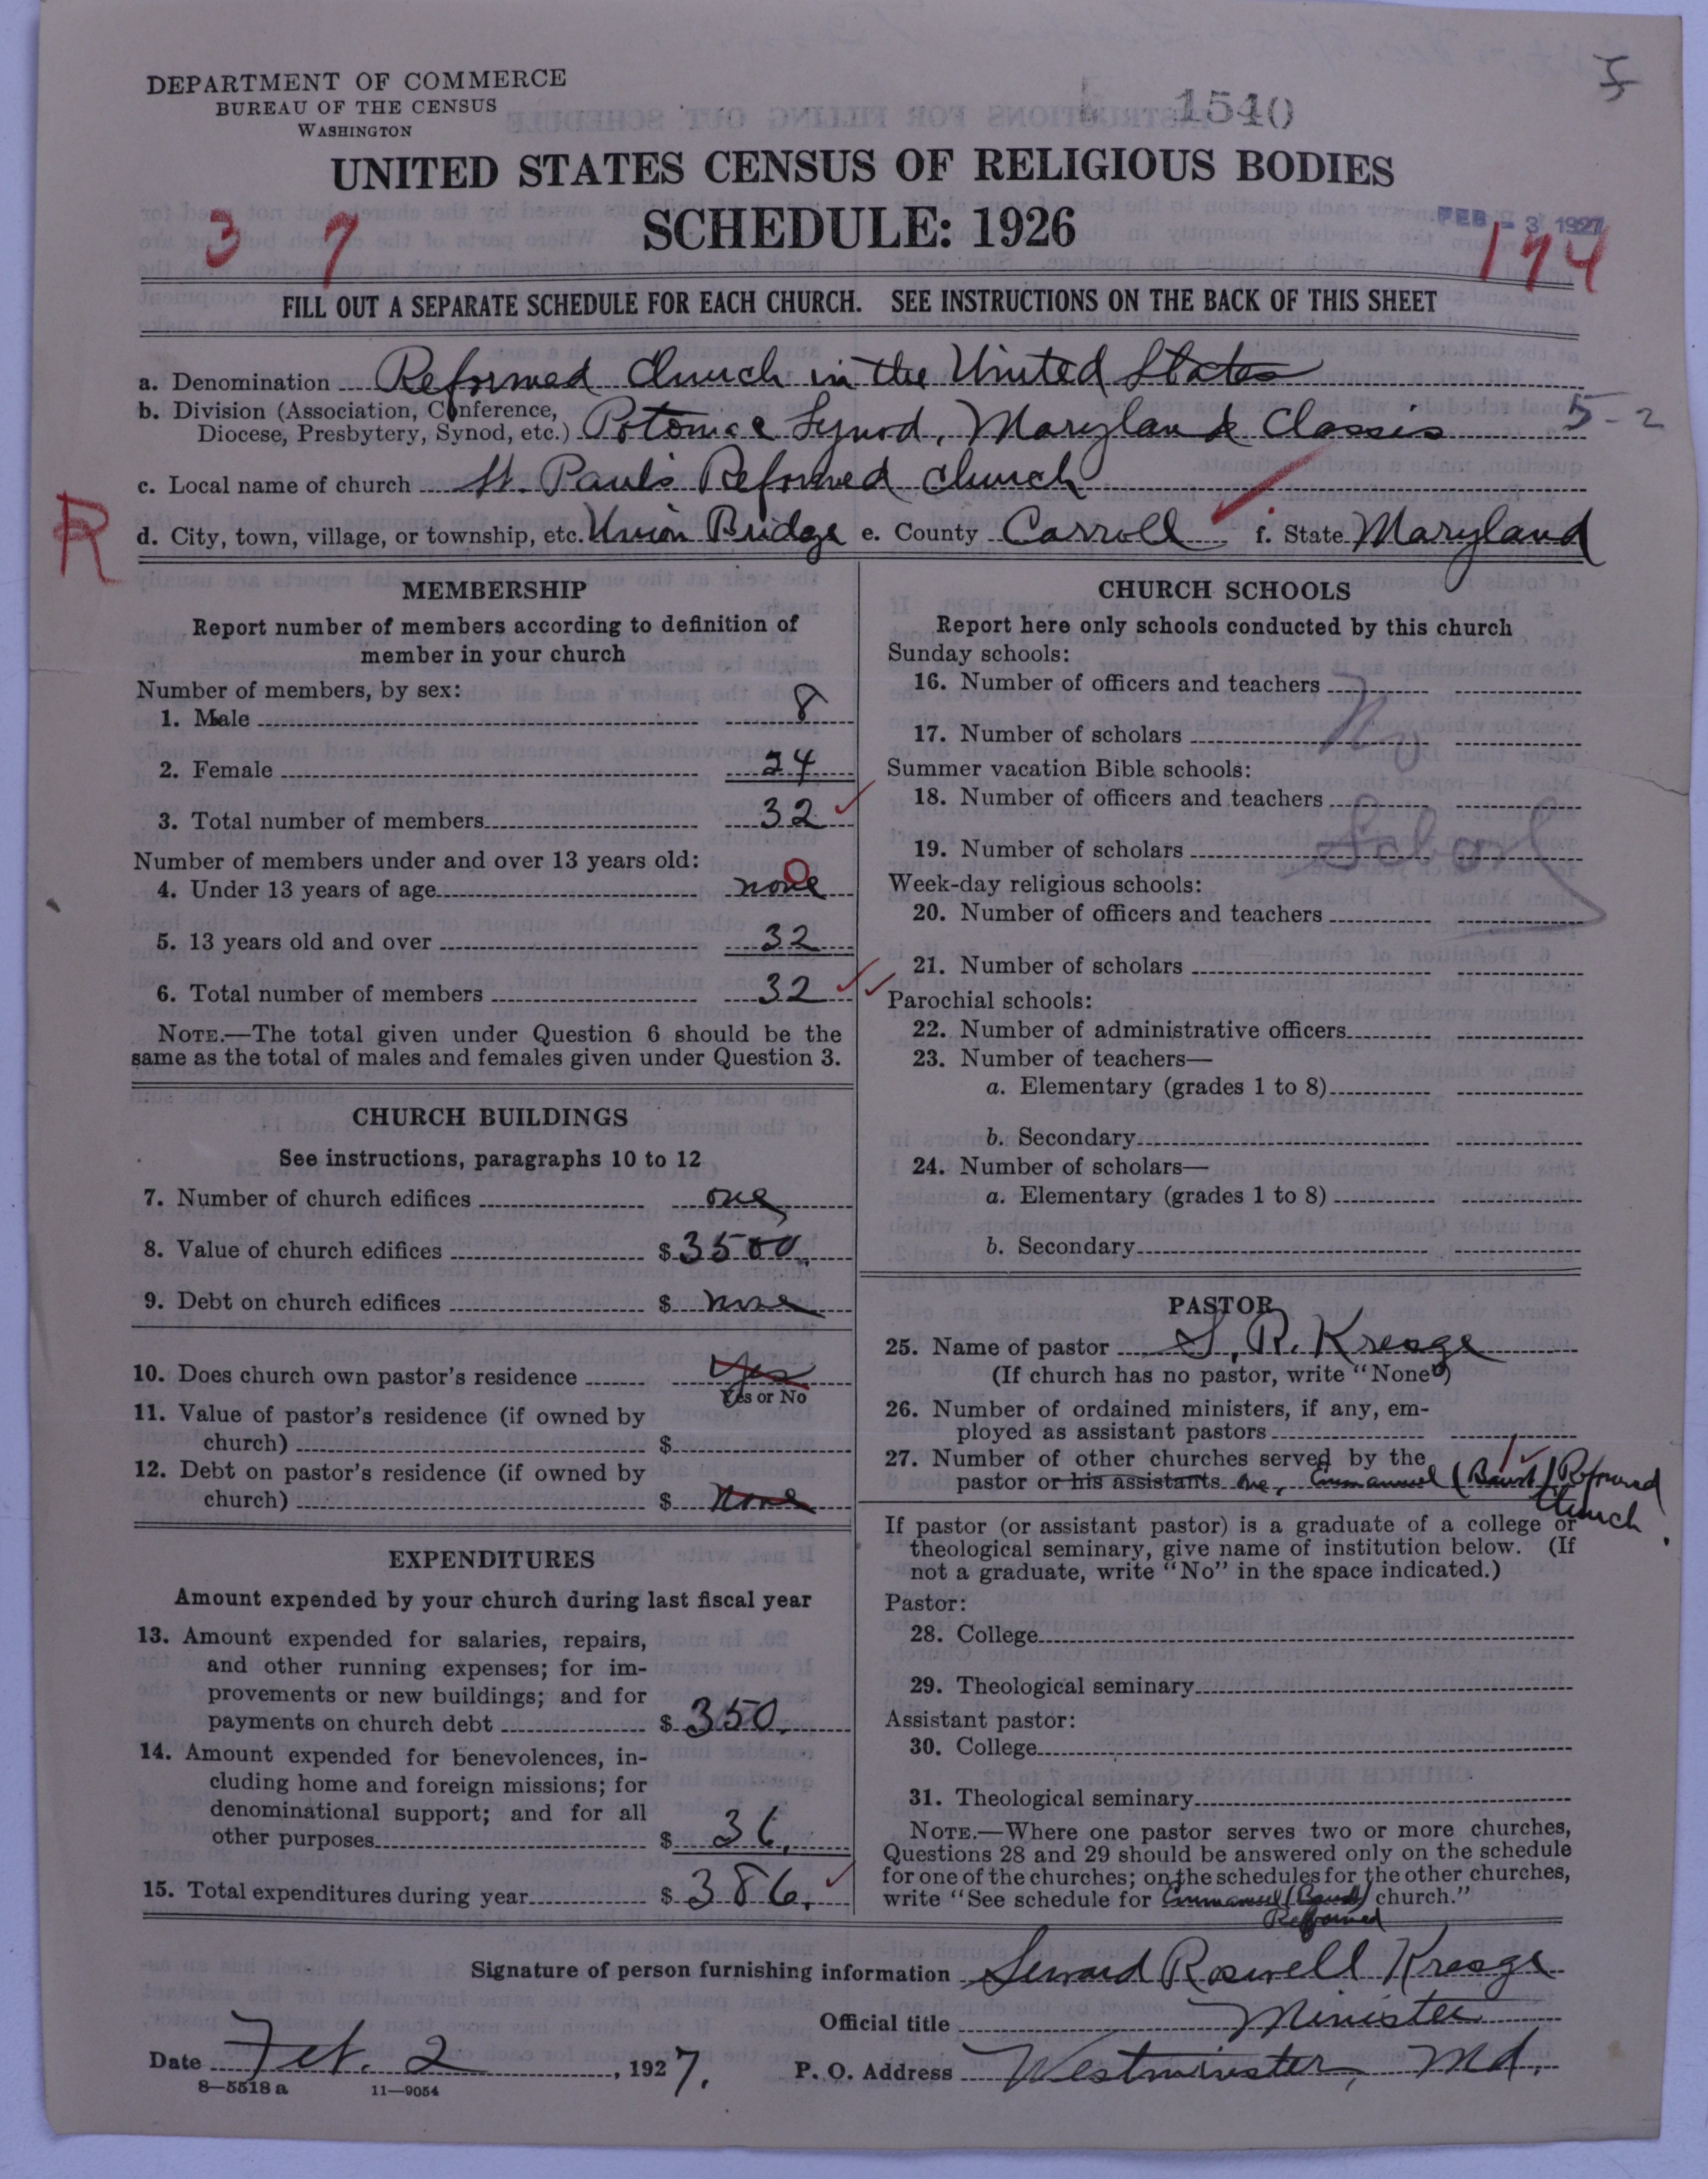 DEPARTMENT OF COMMERCE
BUREAU OF THE CENSUS
WASHINGTON
1540
UNITED STATES CENSUS OF RELIGIOUS BODIES
SCHEDULE: 1926
FEB - 3 1927
3 7
174
FILL OUT A SEPARATE SCHEDULE FOR EACH CHURCH. SEE INSTRUCTIONS ON THE BACK OF THIS SHEET
a. Denomination Reformed Church in the United States
b. Division (Association, Conference, Diocese, Presbytery, Synod, etc.) Potomac Synod, Maryland Classis 5-2
c. Local name of church St. Paul's Reformed Church
R
d. City, town, village, or township, etc. Union Bridge e. County Carroll f. State Maryland
MEMBERSHIP
Report number of members according to definition of
member in your church
Number of members, by sex:
1. Male 8
2. Female 24
3. Total number of members 32
Number of members under and over 13 years old:
4. Under 13 years of age none 0
5. 13 years old and over 32
6. Total number of members 32
NOTE.—The total given under Question 6 should be the
same as the total of males and females given under Question 3.
CHURCH BUILDINGS
See instructions, paragraphs 10 to 12
7. Number of church edifices one
8. Value of church edifices $ 3500.
9. Debt on church edifices $ none
10. Does church own pastor's residence yes
Yes or No
11. Value of pastor's residence (if owned by
church) $
12. Debt on pastor's residence (if owned by
church) $ none
EXPENDITURES
Amount expended by your church during last fiscal year
13. Amount expended for salaries, repairs,
and other running expenses; for im-
provements or new buildings; and for
payments on church debt $ 350.
14. Amount expended for benevolences, in-
cluding home and foreign missions; for
denominational support; and for all
other purposes $ 36.
15. Total expenditures during year $ 386.
CHURCH SCHOOLS
Report here only schools conducted by this church
Sunday schools:
16. Number of officers and teachers
No
17. Number of scholars
Summer vacation Bible schools:
18. Number of officers and teachers
School
19. Number of scholars
Week-day religious schools:
20. Number of officers and teachers
21. Number of scholars
Parochial schools:
22. Number of administrative officers
23. Number of teachers—
a. Elementary (grades 1 to 8)
b. Secondary
24. Number of scholars—
a. Elementary (grades 1 to 8)
b. Secondary
PASTOR
25. Name of pastor S. R. Kresge
(If church has no pastor, write "None")
26. Number of ordained ministers, if any, em-
ployed as assistant pastors
27. Number of other churches served by the
pastor or his assistants one, Emmanuel (Baust) Reformed
Church.
If pastor (or assistant pastor) is a graduate of a college or
theological seminary, give name of institution below. (If
not a graduate, write "No" in the space indicated.)
Pastor:
28. College
29. Theological seminary
Assistant pastor:
30. College
31. Theological seminary
NOTE.—Where one pastor serves two or more churches,
Questions 28 and 29 should be answered only on the schedule
for one of the churches; on the schedules for the other churches,
write "See schedule for Emmanuel (Baust) church."
Reformed
Signature of person furnishing information Seward Roswell Kresge
Official title Minister
Date Feb. 2, 1927.
P. O. Address Westminster, Md.
8-5518a 11-9054